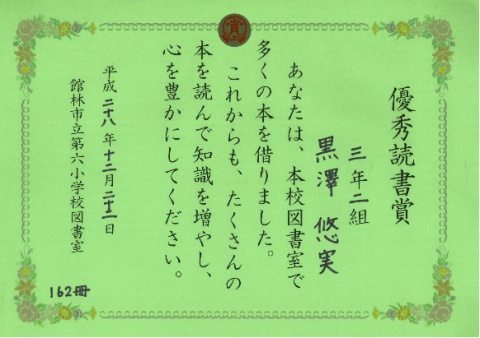 賞
優秀読書賞
三年二組
黒澤悠実
あなたは、本校図書室で
多くの本を借りました。
これからも、たくさんの
本を読んで知識を増やし、
心を豊かにしてください。
平成二十八年十二月二十二日
館林市立第六小学校図書室
162冊